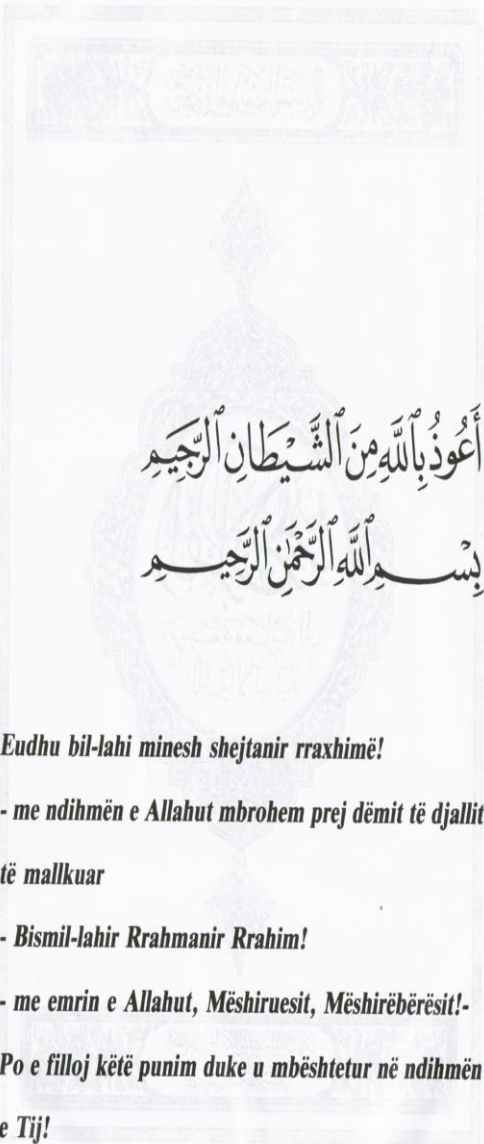 أَعُوذُ بِٱللَّهِ مِنَ ٱلشَّيْطَانِ ٱلرَّجِيمِ
بِسْمِ ٱللَّهِ ٱلرَّحْمَٰنِ ٱلرَّحِيمِ
Eudhu bil-lahi minesh shejtanir rraxhimë!
- me ndihmën e Allahut mbrohem prej dëmit të djallit
të mallkuar
- Bismil-lahir Rrahmanir Rrahim!
- me emrin e Allahut, Mëshiruesit, Mëshirëbërësit!-
Po e filloj këtë punim duke u mbështetur në ndihmën
e Tij!